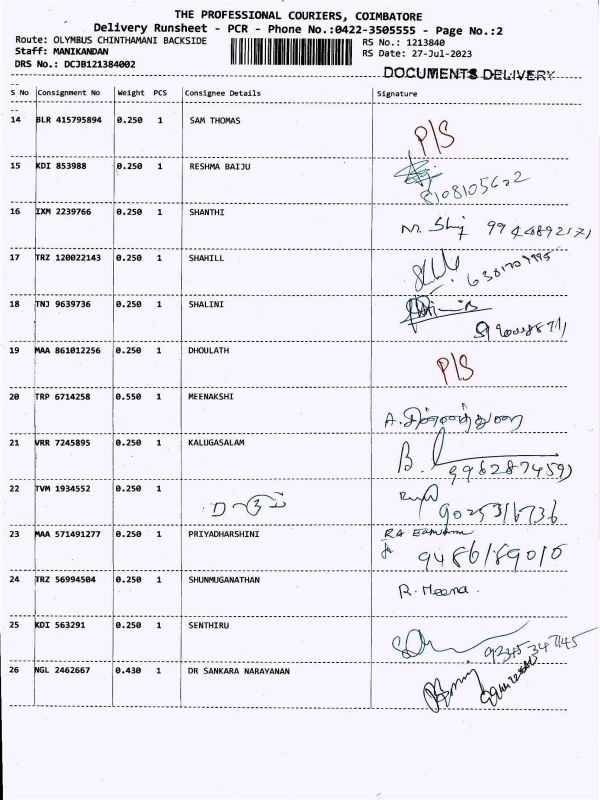 THE PROFESSIONAL COURIERS, COIMBATORE
Delivery Runsheet - PCR - Phone No.:0422-3505555 - Page No.:2
Route: OLYMBUS CHINTHAMANI BACKSIDE RS No.: 1213840
Staff: MANIKANDAN RS Date: 27-Jul-2023
DRS No.: DCJB121384002 DOCUMENTS DELIVERY
S No Consignment No Weight PCS Consignee Details Signature
14 BLR 415795894 0.250 1 SAM THOMAS P/S
15 KDI 853988 0.250 1 RESHMA BAIJU
8108105622
16 IXM 2239766 0.250 1 SHANTHI
17 TRZ 120022143 0.250 1 SHAHILL
18 TNJ 9639736 0.250 1 SHALINI
19 MAA 861012256 0.250 1 DHOULATH P/S
20 TRP 6714258 0.550 1 MEENAKSHI
21 VRR 7245895 0.250 1 KALUGASALAM B.
9962874591
22 TVM 1934552 0.250 1
9025316736
23 MAA 571491277 0.250 1 PRIYADHARSHINI
9486189010
24 TRZ 56994504 0.250 1 SHUNMUGANATHAN R. Meena.
25 KDI 563291 0.250 1 SENTHIRU
9345347145
26 NGL 2462667 0.430 1 DR SANKARA NARAYANAN